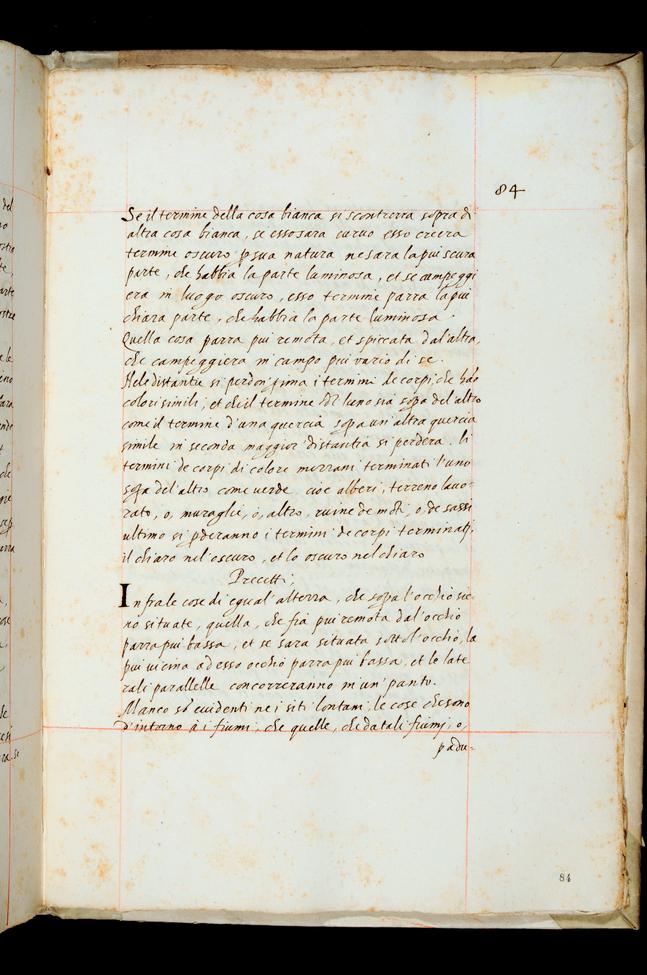 84
Se il termine della cosa bianca si scontrerra sopra di
altra cosa bianca, se esso sara curvo esso creera
termine oscuro p sua natura ne sara la piu scura
parte, che habbia la parte luminosa, et se campeggi
era in luogo oscuro, esso termine parra la piu
chiara parte, che habbia la parte luminosa.
Quella cosa parra piu remota, et spiccata dal'altra,
che campeggiera in campo piu vario di se.
Nele distantie si perdon' prima i termini de corpi, che hāo
colori simili, et che il termine del' luno sia sopa del'altro
come il termine d'una quercia sopa un'altra quercia
simile in seconda maggior' distantia si perdera. li
termini de corpi di colore mezzani terminati l'uno
sopa del'altro come verde, cioe alberi, terreno lavo-
rato, o, muraglie, o, altro, ruine de moti, o, de sassi
ultimo si pderanno i termini de corpi terminati,
il chiaro nel'oscuro, et lo oscuro nel chiaro
Precetti;
In fra le cose di egual'alterra, che sopa l'occhio sie
no situate, quella, che fia piu remota dal'occhio
parra piu bassa, et se sara situata sotto l'occhio, la
piu vicina ad esso occhio parra piu bassa, et le late
rali parallelle concorreranno in un' punto.
Manco sō evidenti ne i siti lontani, le cose che sono
d'intorno à i fiumi, che quelle, che da tali fiumi, o,
padu-
84